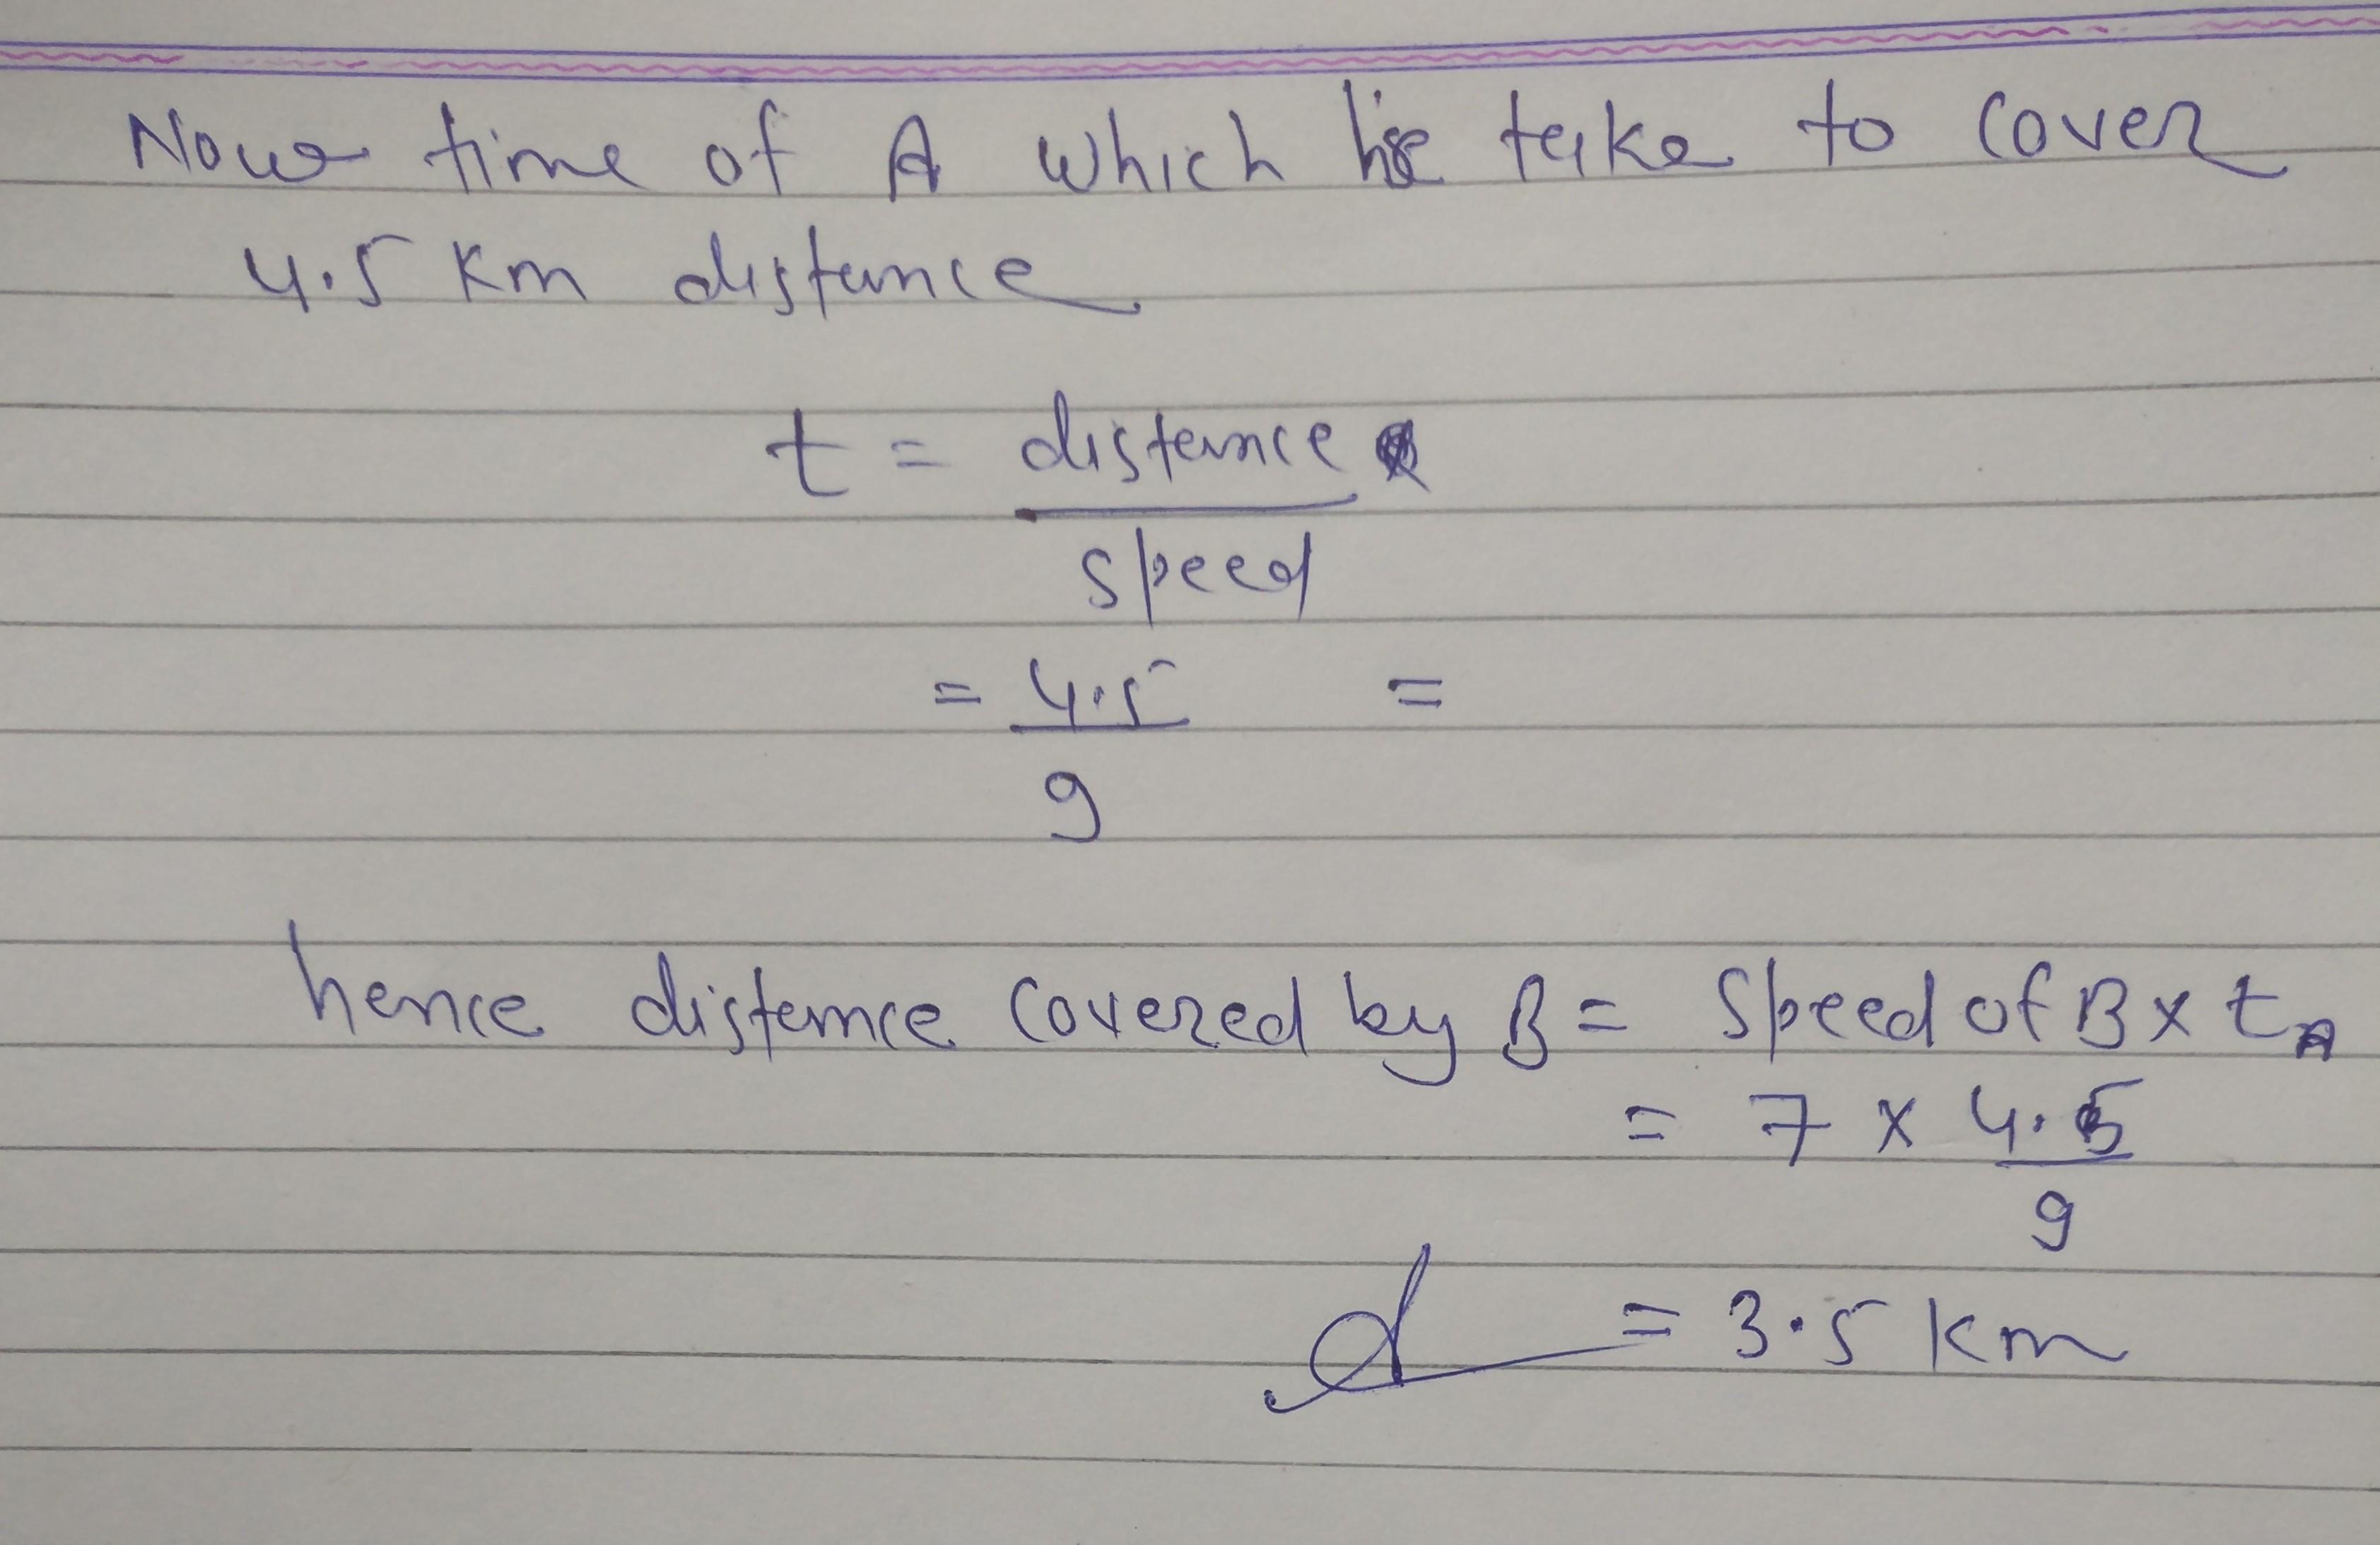 Now time of A which he take to cover
4.5 Km distance
t = distance
speed
= 4.5 =
9
hence distance covered by B = Speed of B x tA
= 7 x 4.5
9
d = 3.5 km